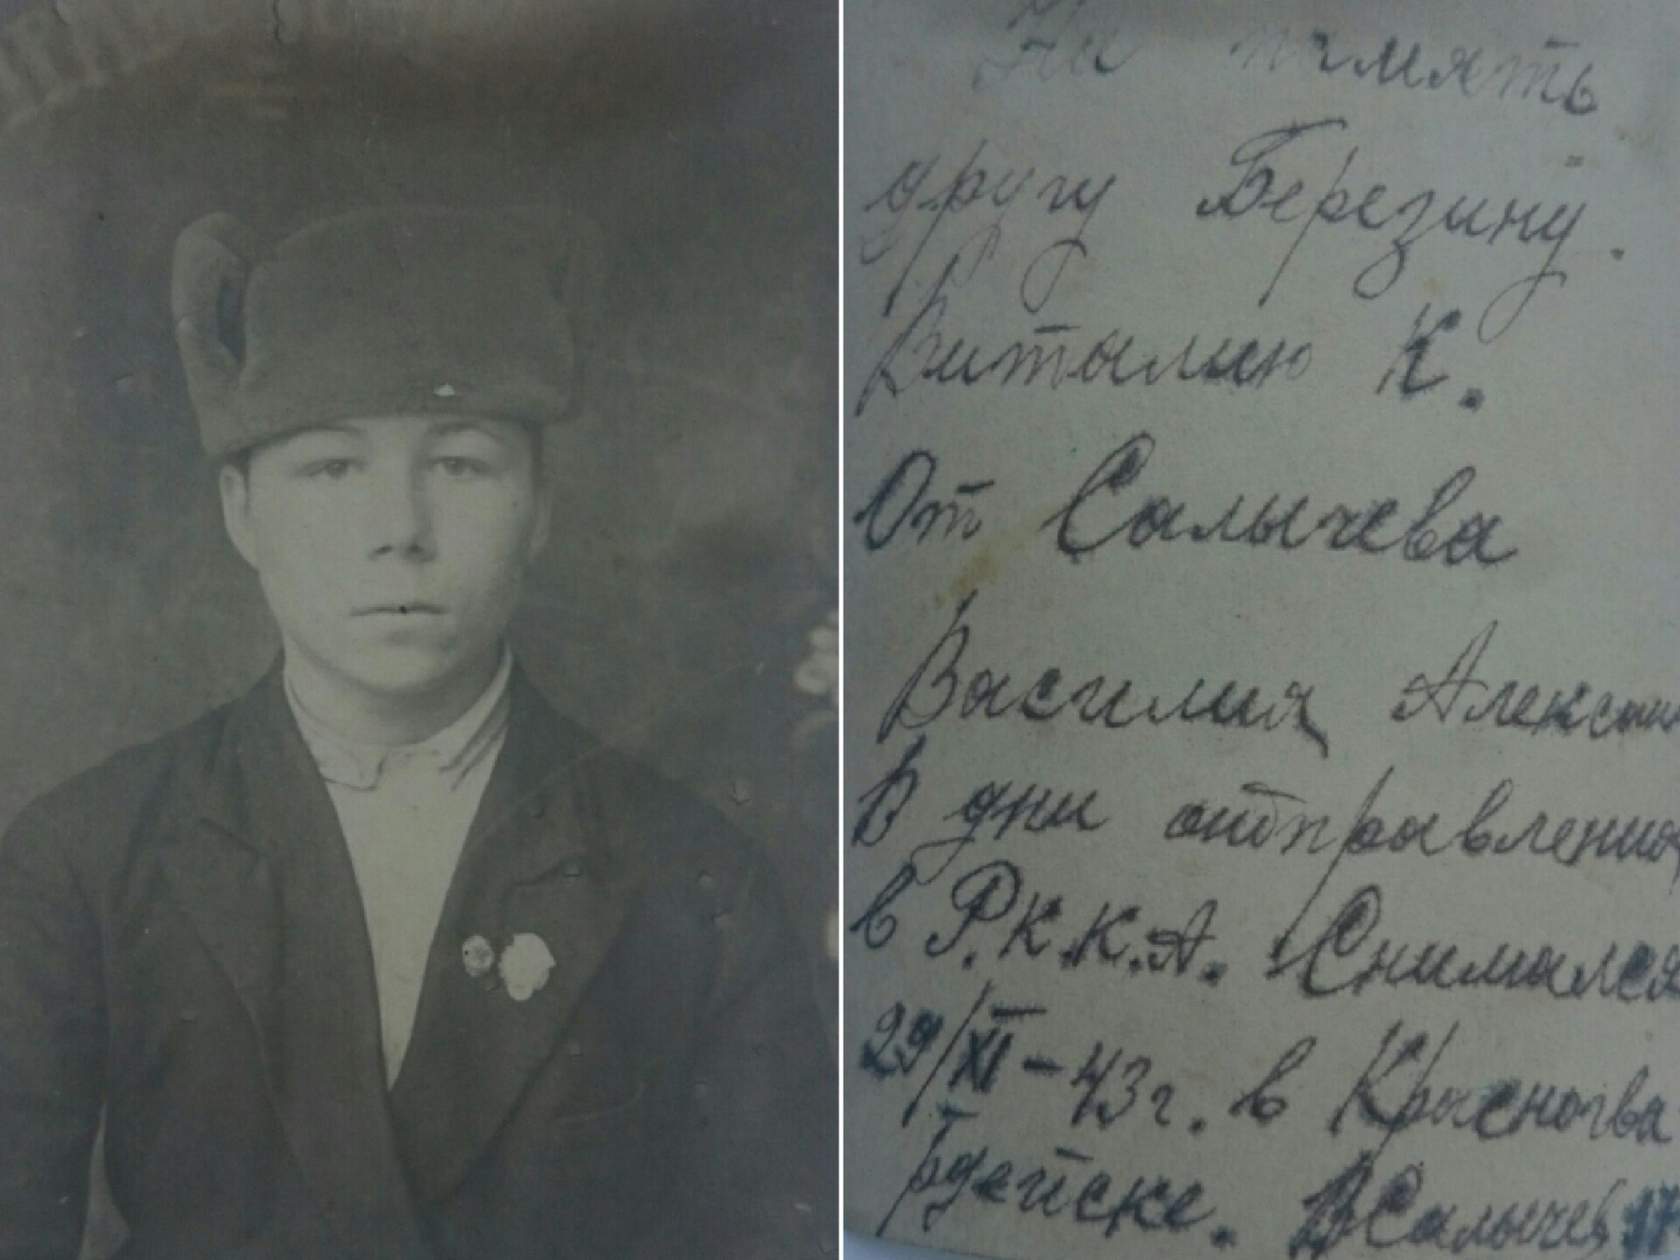 На память
другу Березину.
Виталию К.
От Салычева
Василия
В дни отправления
в Р.К.К.А. Снимался
29/XI-43г. в Красногва
рдейске. ВСалычев